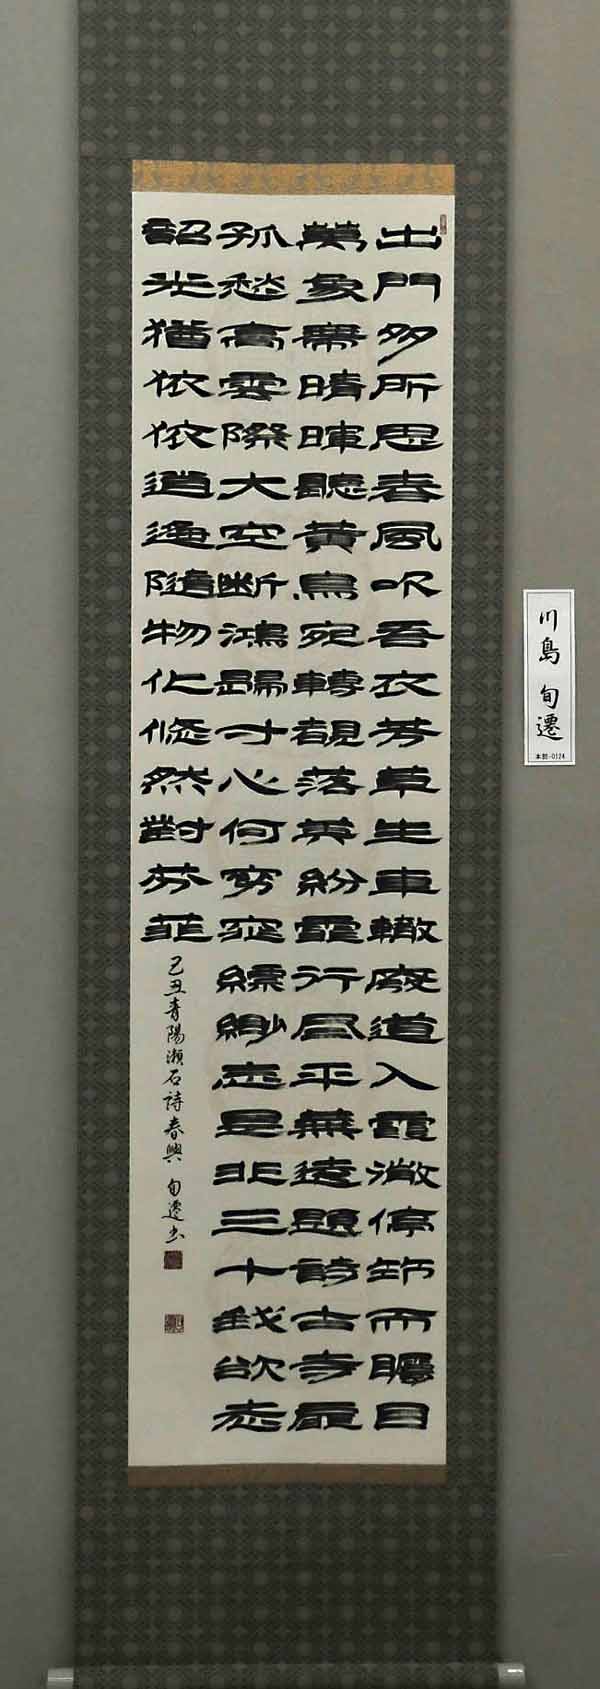 出門多所思春風吹吾衣芳草生車轍廢道入霞微停筇而矚目
萬象帶晴暉聽黄鳥宛轉覩落英紛霏行盡平蕪遠題詩古寺扉
孤愁高雲際大空斷鴻歸寸心何窈窕縹緲忘是非三十我欲老
韶光猶依依逍遙隨物化悠然對芬菲
己丑青陽漱石詩春興 旬遷書
川島 旬遷
本館-0124